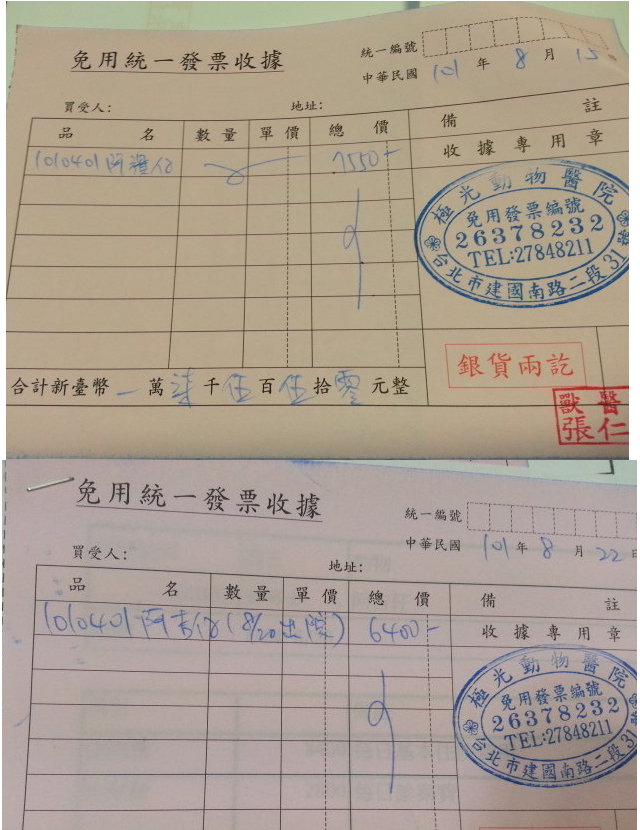 免用統一發票收據
統一編號
中華民國 101 年 8 月 15
買受人: 地址:
品名 數量 單價 總價 備註
1010401 7550-
收據專用章
極光動物醫院
免用發票編號
26378232
TEL:27848211
台北市建國南路二段31
銀貨兩訖
合計新臺幣 一 萬 柒 千 伍 百 伍 拾 零 元整
獸醫
張仁
免用統一發票收據
統一編號
中華民國 101 年 8 月 22 日
買受人: 地址:
品名 數量 單價 總價 備註
1010401 (8/20出院) 6400-
收據專用章
極光動物醫院
免用發票編號
26378232
TEL:27848211
台北市建國南路二段31